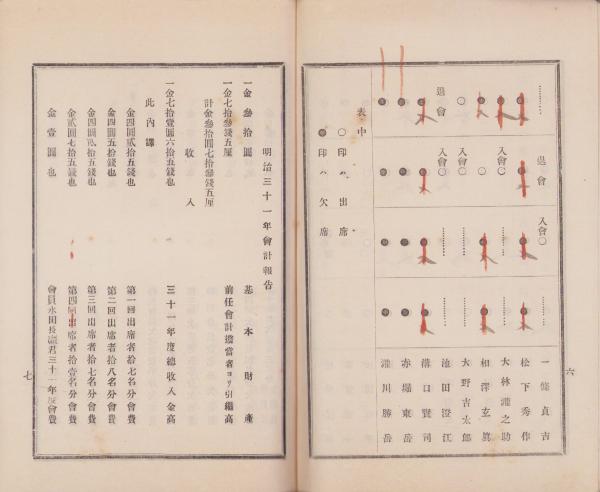 一條貞吉
松下秀作
大林瀧之助
相澤玄眞
大野吉太郎
池田澄江
溝口賢司
赤堀東岳
瀧川勝岳
退會
入會○
入會○
入會○
入會○
退會
表中
○印ハ出席
●印ハ欠席
六
明治三十一年會計報告
一金參拾圓 基本財產
一金七拾參錢五厘 前任會計擔當者ヨリ引繼高
計金參拾圓七拾參錢五厘
收入
一金七拾壹圓六拾五錢也 三十一年度總收入金高
此內譯
金四圓貳拾五錢也 第一回出席者拾七名分會費
金四圓五拾錢也 第二回出席者拾八名分會費
金四圓貳拾五錢也 第三回出席者拾七名分會費
金貳圓七拾五錢也 第四回出席者拾壹名分會費
金壹圓也 會員永田長 君三十一年度會費
七